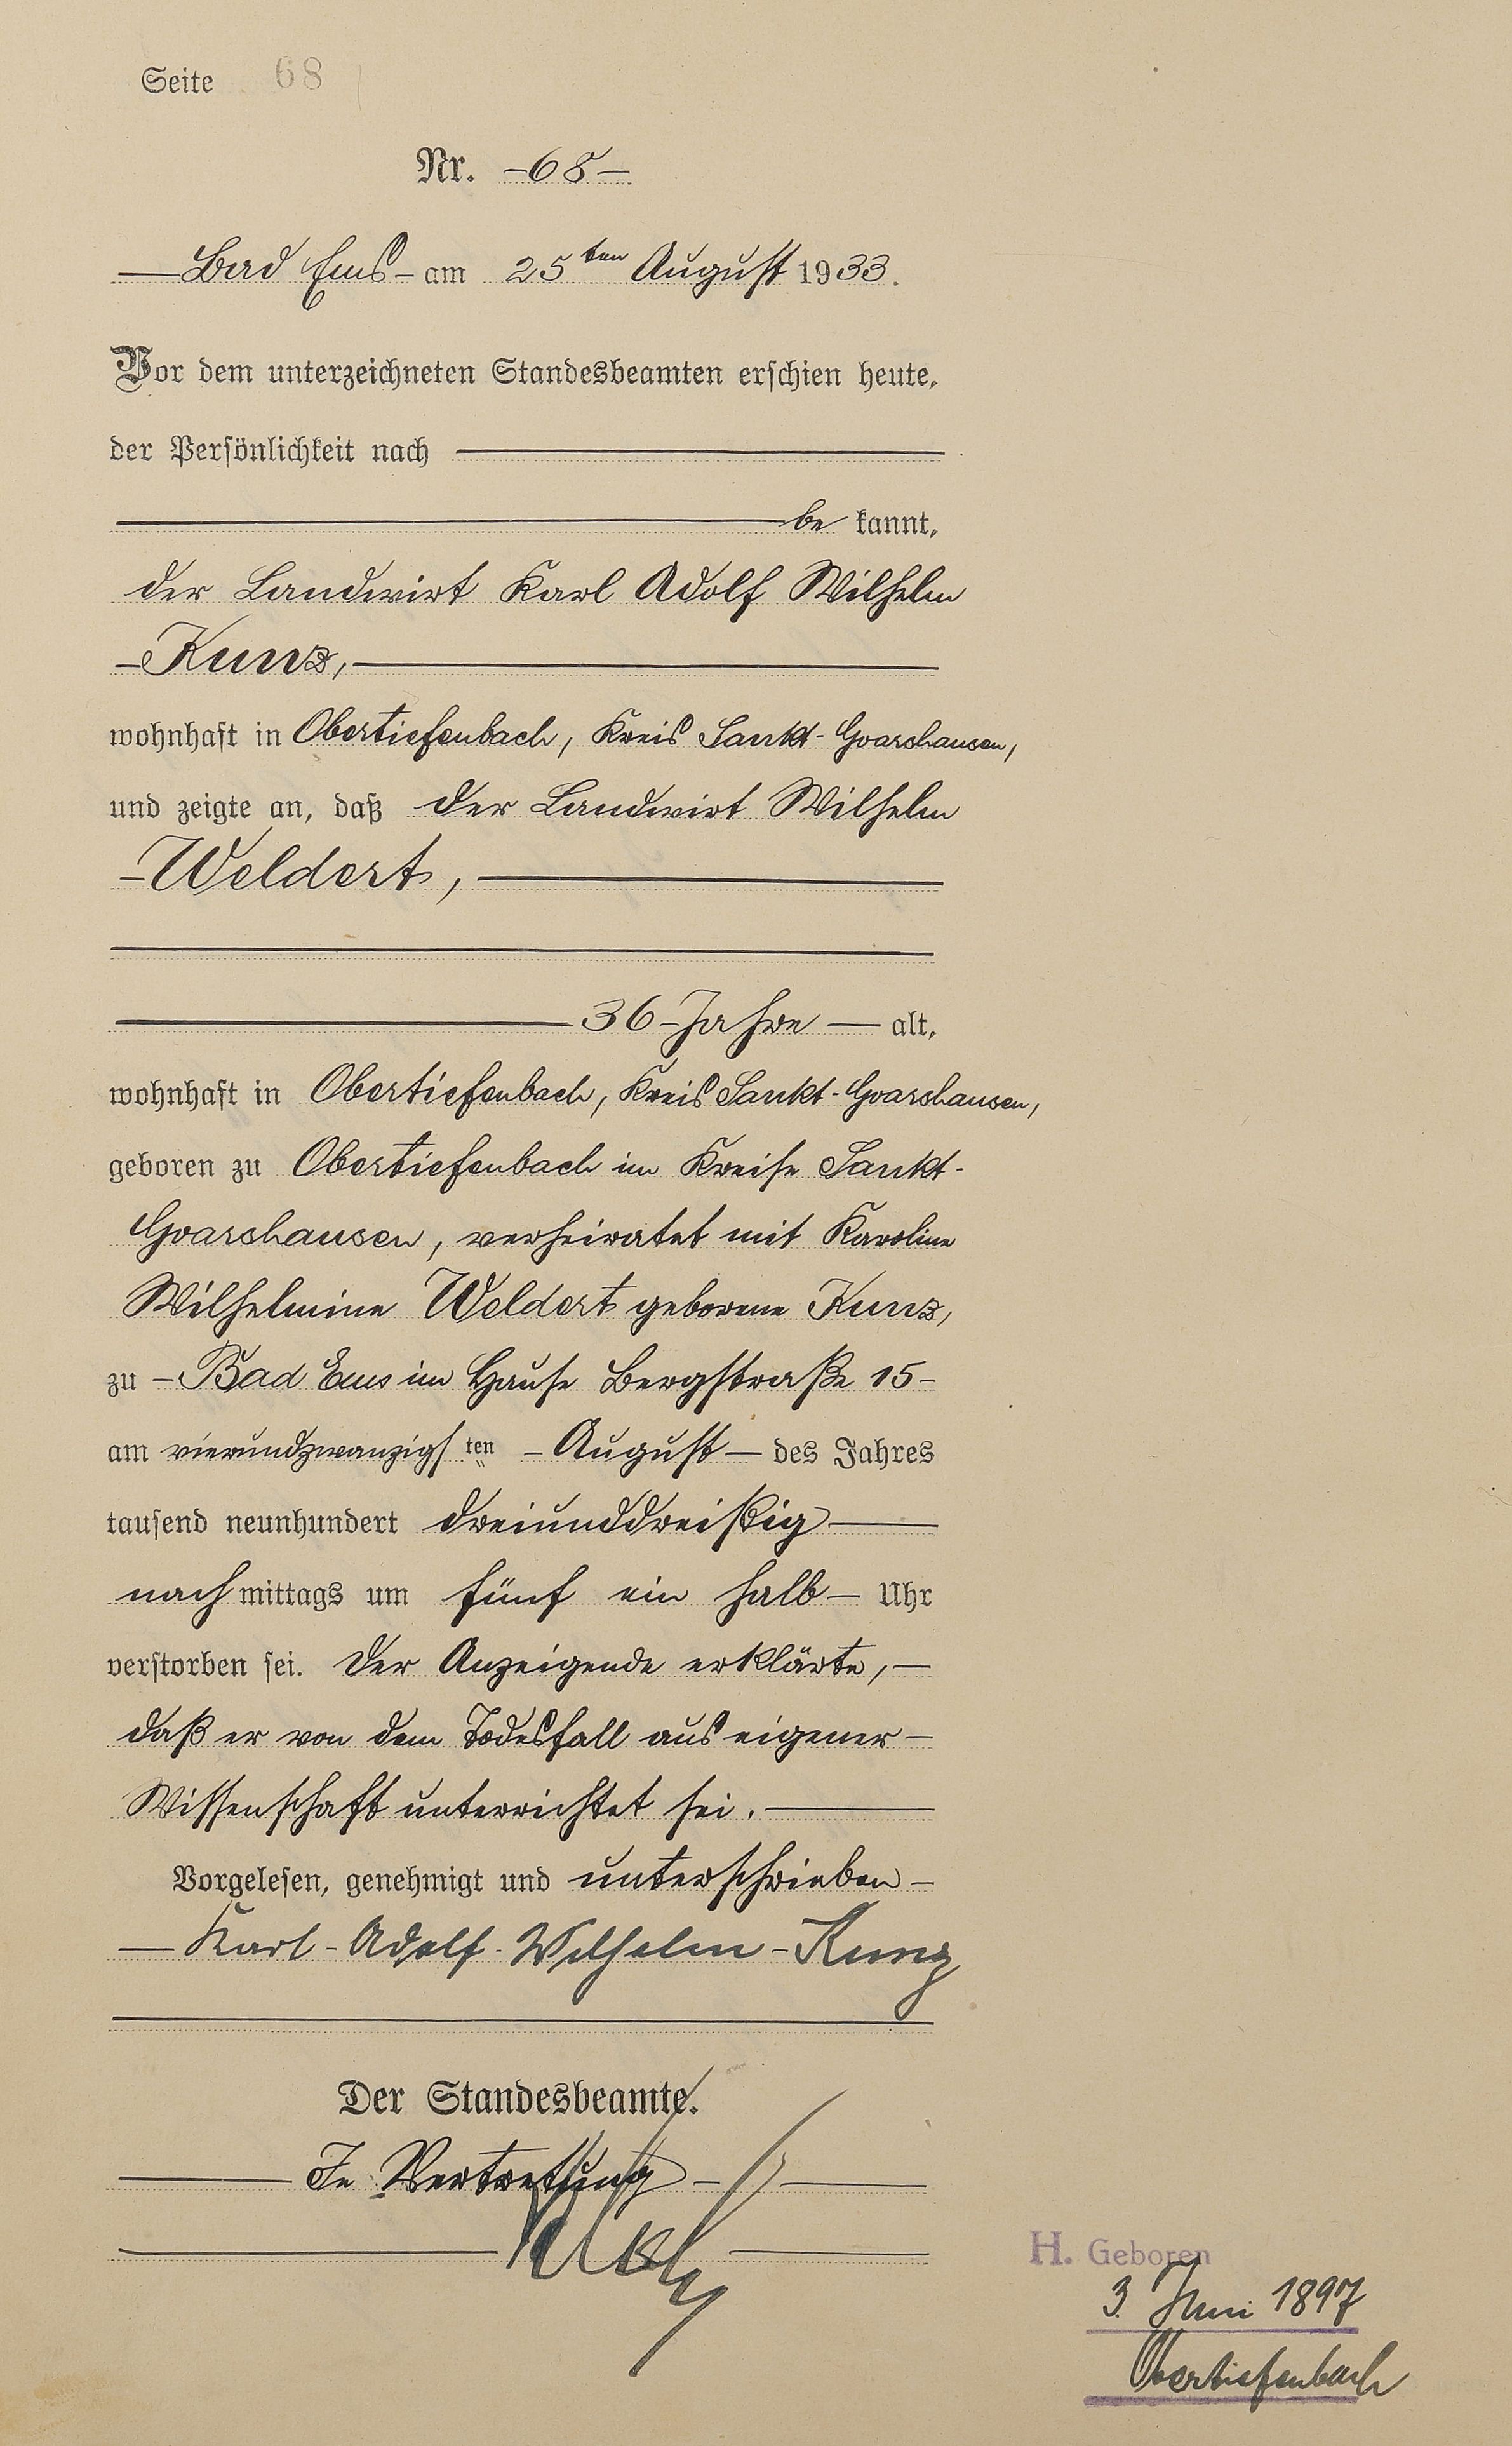 Seite 68
Nr. -68-
Bad Ems - am 25ten August 1933.
Vor dem unterzeichneten Standesbeamten erschien heute,
der Persönlichkeit nach
be kannt,
der Landwirt Karl Adolf Wilhelm
- Kunz,
wohnhaft in Obertiefenbach, Kreis Sankt-Goarshausen,
und zeigte an, daß der Landwirt Wilhelm
- Weldert,
36 - Jahre — alt,
wohnhaft in Obertiefenbach, Kreis Sankt-Goarshausen,
geboren zu Obertiefenbach im Kreise Sankt-
Goarshausen, verheiratet mit Karoline
Wilhelmine Weldert geborene Kunz,
zu - Bad Ems im Hause Bergstraße 15 -
am vierundzwanzigsten - August - des Jahres
tausend neunhundert dreiunddreißig
nachmittags um fünf ein halb - Uhr
verstorben sei. Der Anzeigende erklärte, -
daß er von dem Todesfall aus eigener -
Wissenschaft unterrichtet sei.
Vorgelesen, genehmigt und unterschrieben -
- Karl - Adolf - Wilhelm - Kunz
Der Standesbeamte.
In Vertretung -
H. Geboren
3. Juni 1897
Obertiefenbach